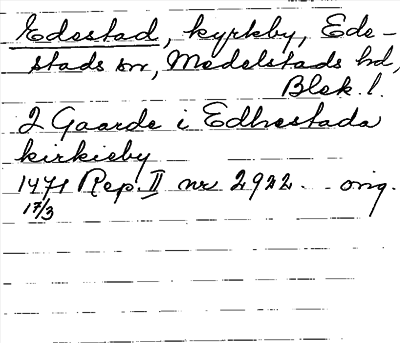 Edestad, kyrkby, Ede-
stads sn, Medelstads hd,
Blek. l.
2 Gaarde i Edhestada
kirkieby
1471 Rep. II nr 2922 - orig.
17/3